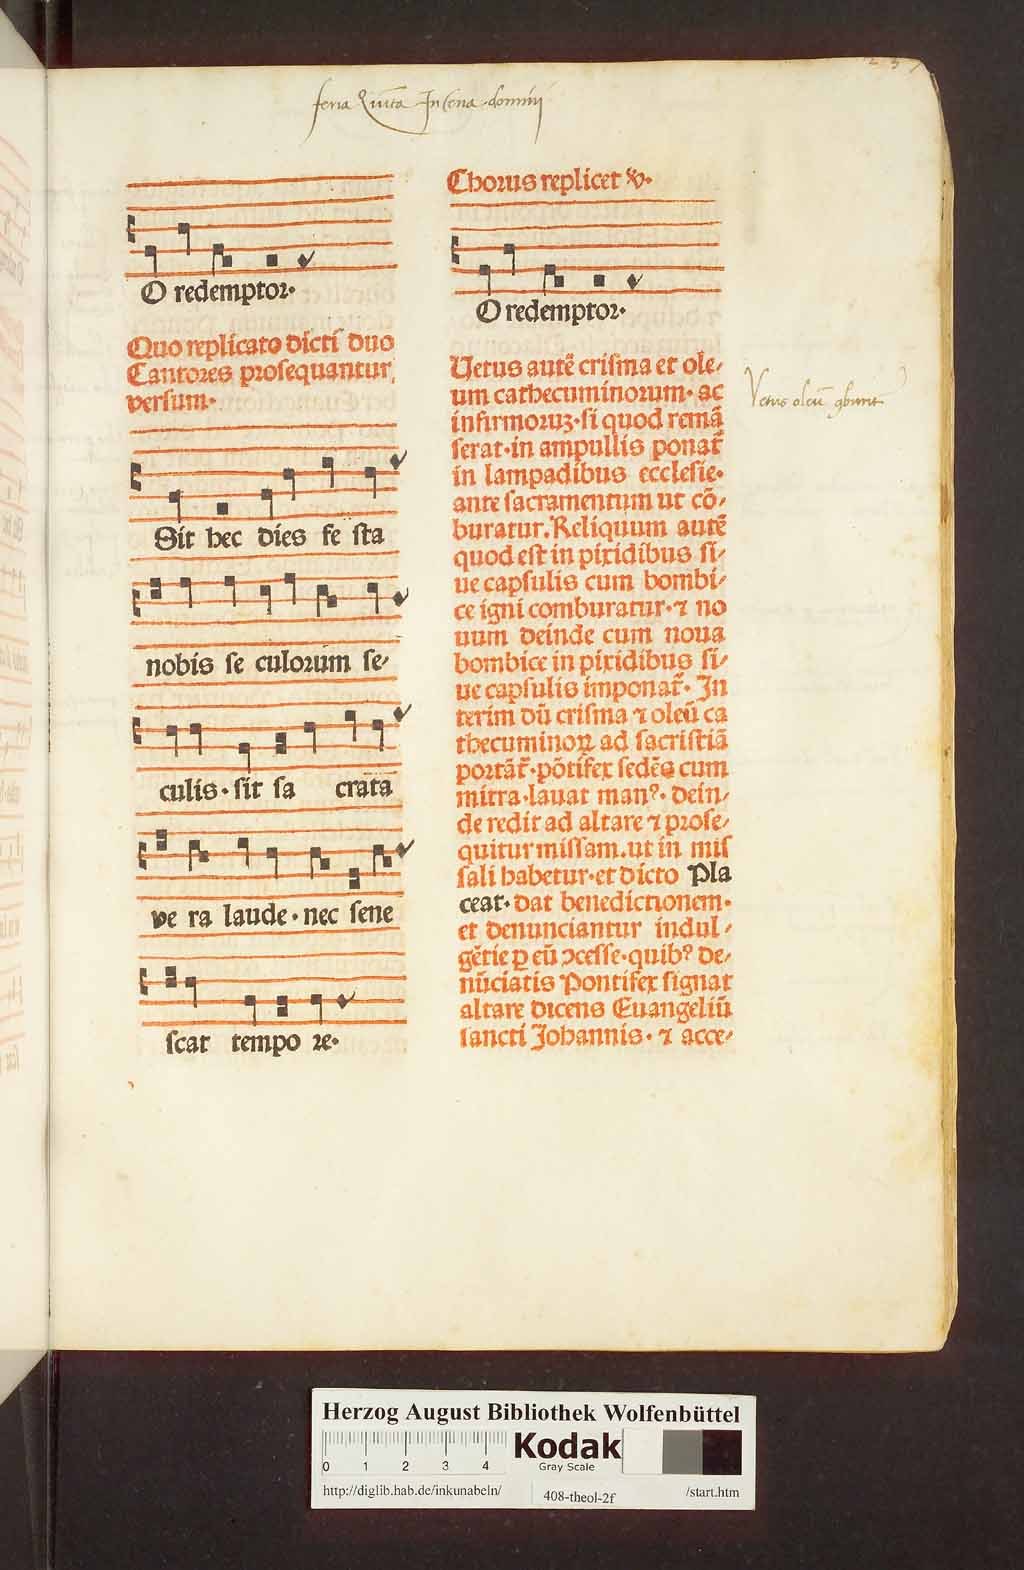 feria Quīta In Cena domīnj
237
O redemptor·
Quo replicato dicti duo
Cantores prosequantur
versum·
Sit hec dies fe sta
nobis se culorum se⸗
culis · sit sa crata
ve ra laude · nec sene
scat tempo re·
Chorus replicet ℣·
O redemptor·
Uetus autē crisma et ole⸗
um cathecuminorum· ac
infirmoruꝫ·si quod remā
serat·in ampullis ponat᷑
in lampadibus ecclesie·
ante sacramentum ut cō⸗
buratur. Reliquum autē
quod est in pixidibus si⸗
ue capsulis cum bombi⸗
ce igni comburatur·⁊ no
uum deinde cum noua
bombice in pixidibus si⸗
ue capsulis imponat᷑· In
terim dū crisma ⁊ oleū ca
thecuminoꝝ ad sacristiā
portāt᷑·pōtifex sedēs cum
mitra·lauat manꝰ· dein⸗
de redit ad altare ⁊ prose⸗
quitur missam.ut in mis
sali habetur·et dicto Pla
ceat· dat benedictionem·
et denunciantur indul⸗
gētie ꝑ eū ꝯcesse·quibꝰ de⸗
nūciatis Pontifex signat
altare dicens Euangeliū
sancti Johannis· ⁊ acce⸗
Vetus oleū gburit
Herzog August Bibliothek Wolfenbüttel
0 1 2 3 4
Kodak
Gray Scale
http://diglib.hab.de/inkunabeln/ 408-theol-2f /start.htm